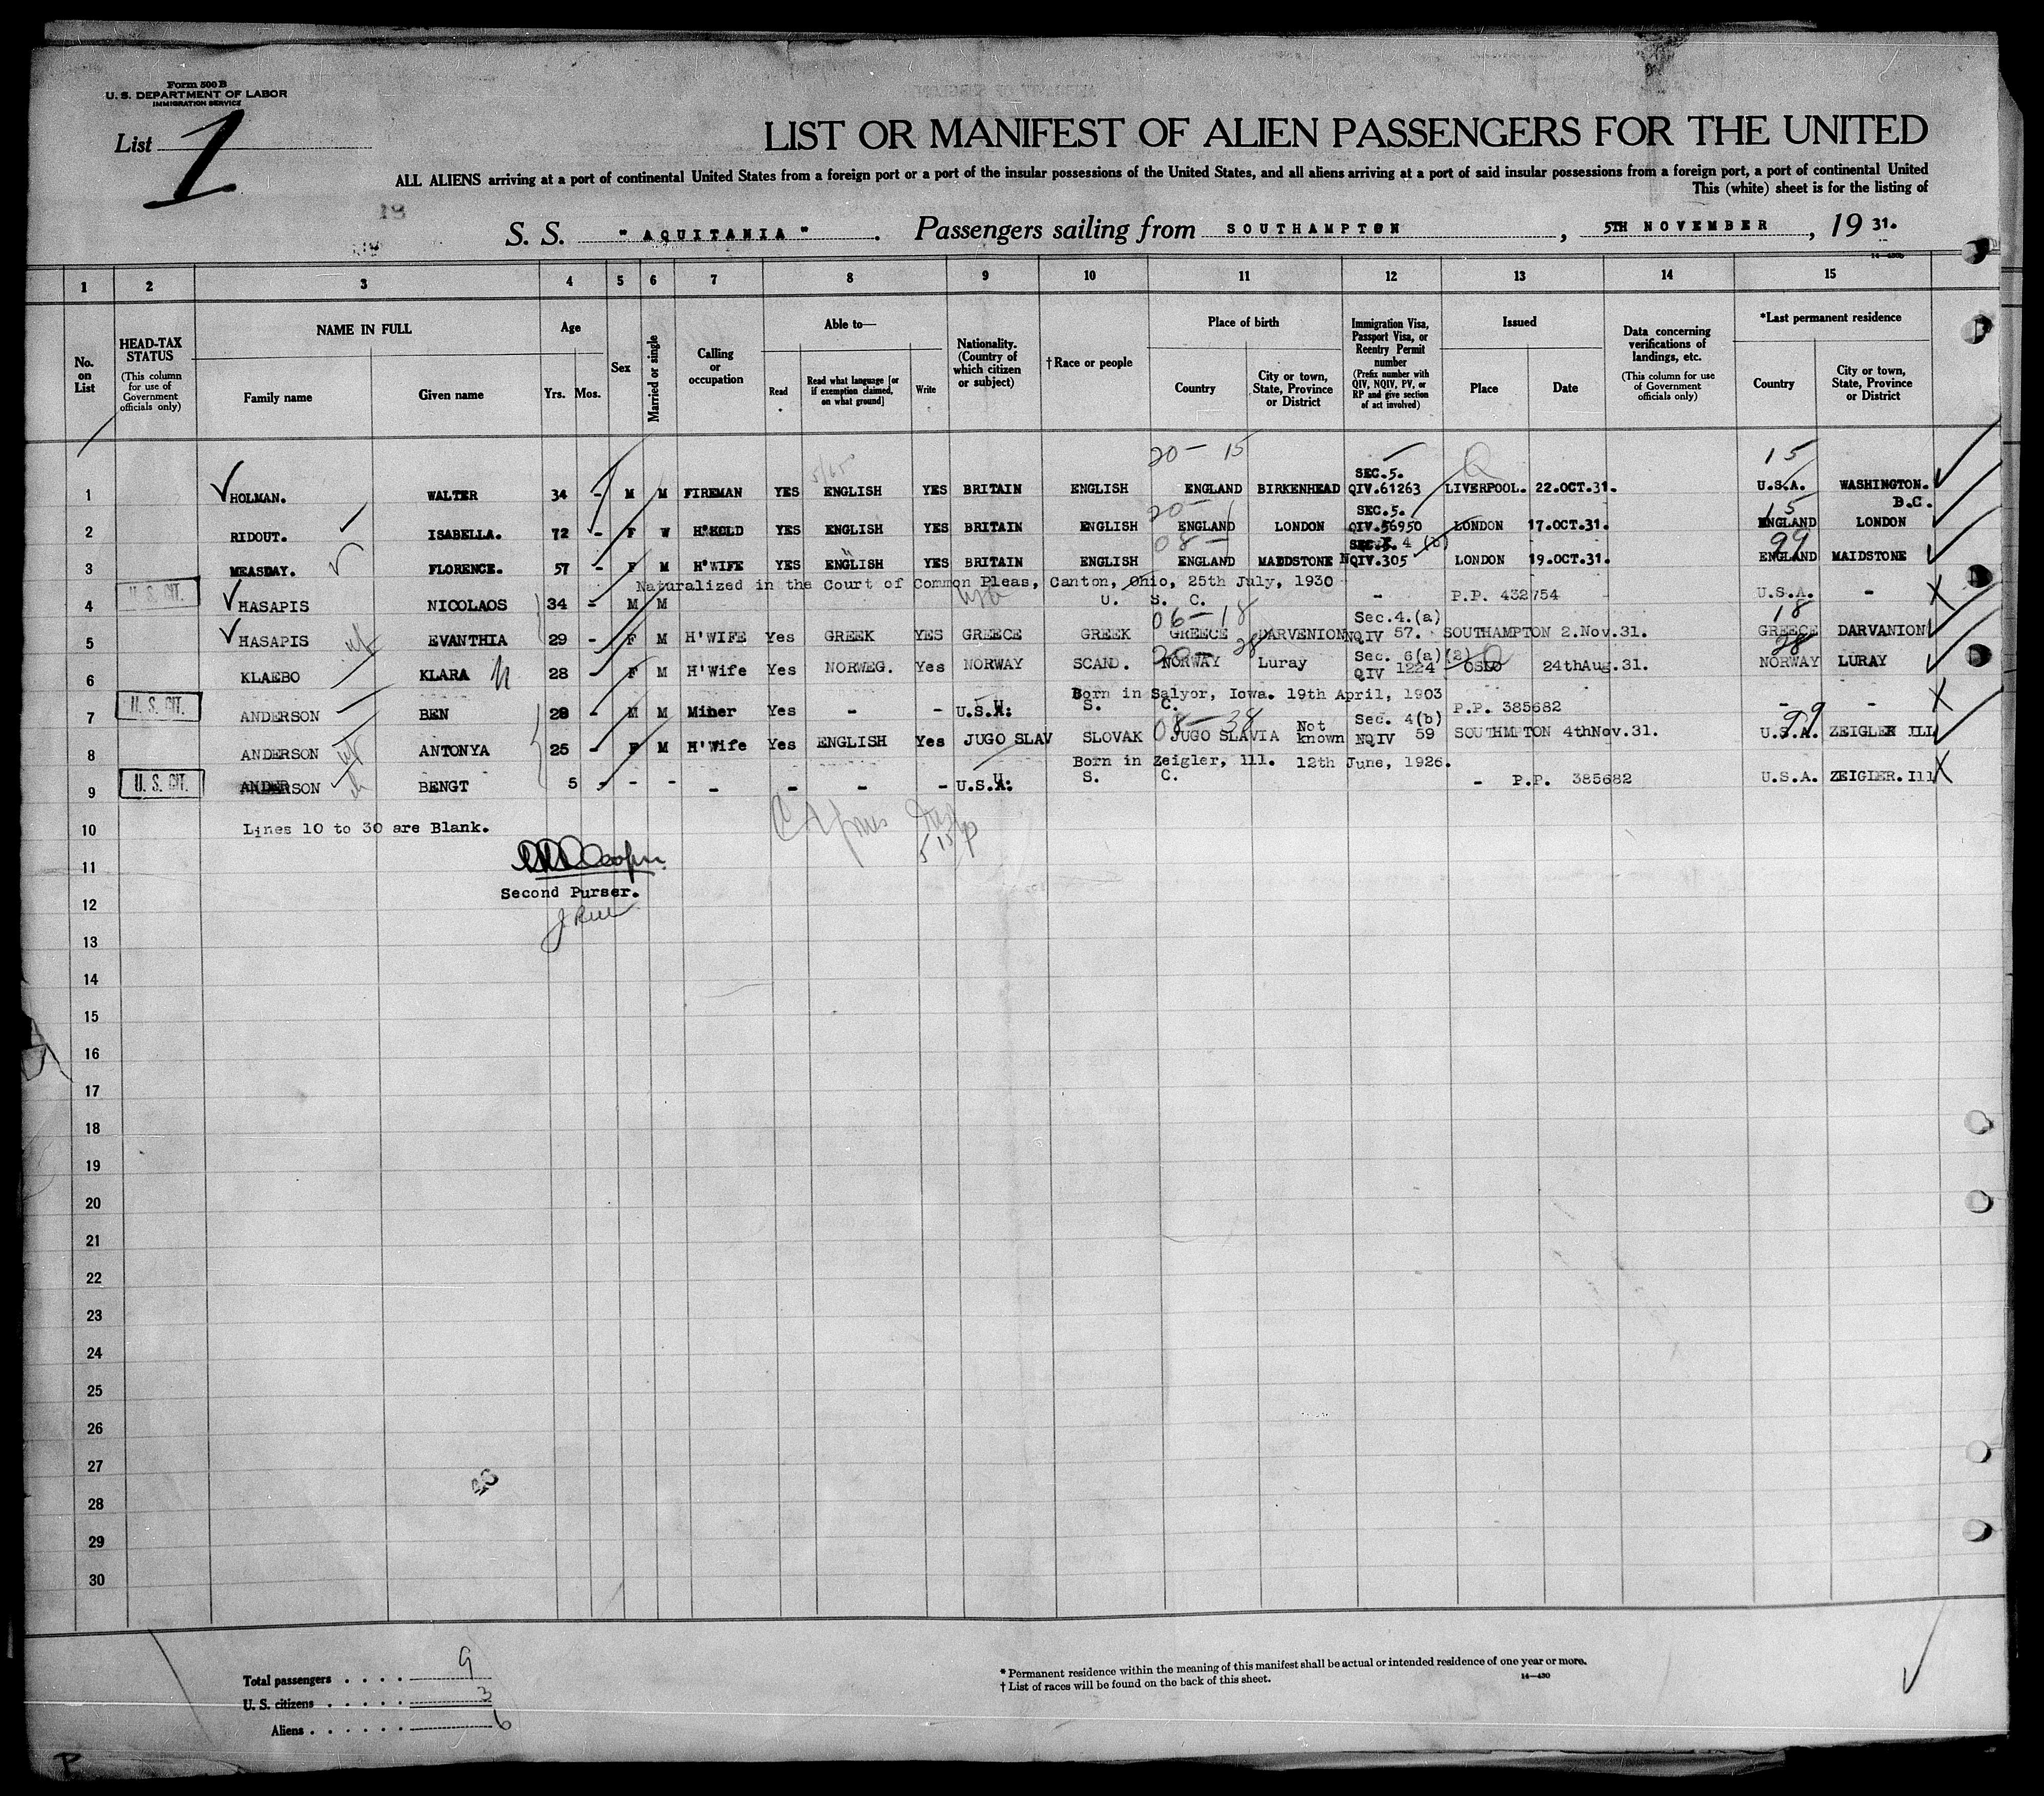 Form 500 B
U. S. DEPARTMENT OF LABOR
IMMIGRATION SERVICE
List 1
LIST OR MANIFEST OF ALIEN PASSENGERS FOR THE UNITED
ALL ALIENS arriving at a port of continental United States from a foreign port or a port of the insular possessions of the United States, and all aliens arriving at a port of said insular possessions from a foreign port, a port of continental United
This (white) sheet is for the listing of
S. S. "AQUITANIA". Passengers sailing from SOUTHAMPTON, 5TH NOVEMBER, 19 31.
1 2 3 4 5 6 7 8 9 10 11 12 13 14 15
No. on List
HEAD-TAX STATUS (This column for use of Government officials only)
NAME IN FULL
Family name Given name
Age
Yrs. Mos.
Sex
Married or single
Calling or occupation
Able to—
Read Read what language [or if exemption claimed, on what ground] Write
Nationality. (Country of which citizen or subject)
†Race or people
Place of birth
Country City or town, State, Province or District
Immigration Visa, Passport Visa, or Reentry Permit number (Prefix number with QIV, NQIV, PV, or RP and give section of act involved)
Issued
Place Date
Data concerning verifications of landings, etc. (This column for use of Government officials only)
*Last permanent residence
Country City or town, State, Province or District
20 — 15 15
SEC.5.
1 HOLMAN. WALTER 34 - M M FIREMAN YES ENGLISH YES BRITAIN ENGLISH ENGLAND BIRKENHEAD QIV.61263 LIVERPOOL. 22.OCT.31. U.S.A. WASHINGTON. D.C.
20 — SEC.5. 15
2 RIDOUT. ISABELLA. 72 - F W H'HOLD YES ENGLISH YES BRITAIN ENGLISH ENGLAND LONDON QIV.56950 LONDON 17.OCT.31. ENGLAND LONDON
08 — 4 (b) 99
3 MEASDAY. FLORENCE. 57 - F M H'WIFE YES ENGLISH YES BRITAIN ENGLISH ENGLAND MAIDSTONE NQIV.305 LONDON 19.OCT.31. ENGLAND MAIDSTONE
Naturalized in the Court of Common Pleas, Canton, Ohio, 25th July, 1930
U. S. CIT.
4 HASAPIS NICOLAOS 34 - M M U. S. C. - P.P. 432754 U.S.A. -
06 — 18 Sec.4.(a) 18
5 HASAPIS EVANTHIA 29 - F M H'WIFE Yes GREEK YES GREECE GREEK GREECE DARVENION NQIV 57. SOUTHAMPTON 2.Nov.31. GREECE DARVANION
20 — 28 Sec. 6(a)(3) 28
6 KLAEBO KLARA 28 - F M H'Wife Yes NORWEG. Yes NORWAY SCAND. NORWAY Luray QIV 1224 OSLO 24thAug.31. NORWAY LURAY
Born in Salyor, Iowa. 19th April, 1903
U. S. CIT.
7 ANDERSON BEN 28 - M M Miner Yes - - U.S.A. S. C. P.P. 385682 - -
08 — 38 Sec. 4(b) 99
8 ANDERSON ANTONYA 25 - F M H'Wife Yes ENGLISH Yes JUGO SLAV SLOVAK JUGO SLAVIA Not known NQIV 59 SOUTHMPTON 4thNov.31. U.S.A. ZEIGLER ILL
Born in Zeigler, Ill. 12th June, 1926.
U. S. CIT.
9 ANDERSON BENGT 5 - - - - - - U.S.A. S. C. - P.P. 385682 U.S.A. ZEIGLER.Ill
10 Lines 10 to 30 are Blank.
11
Second Purser.
12
13
14
15
16
17
18
19
20
21
22
23
24
25
26
27
28
29
30
Total passengers . . . . 9
U. S. citizens . . . . . 3
Aliens . . . . . . 6
* Permanent residence within the meaning of this manifest shall be actual or intended residence of one year or more.
† List of races will be found on the back of this sheet.
14—430
P